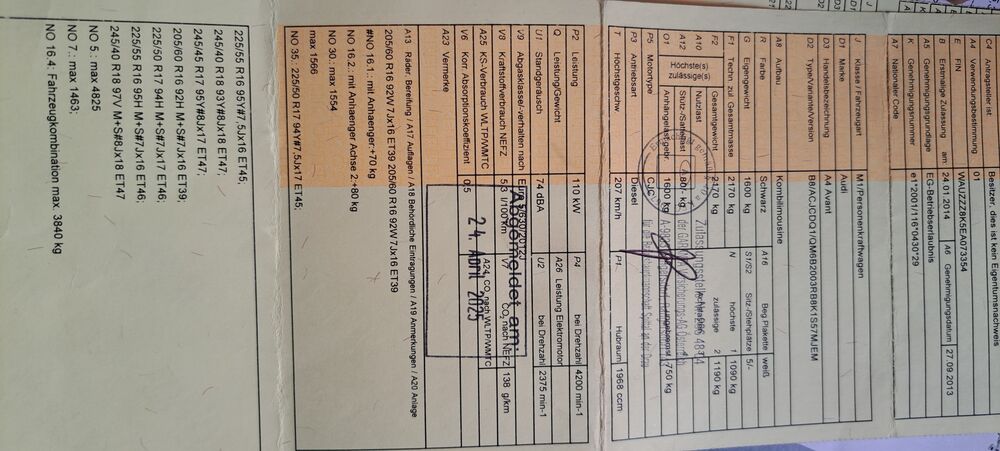 C4 Antragsteller ist Besitzer, dies ist kein Eigentumsnachweis
A4 Verwendungsbestimmung 01
E FIN WAUZZZ8K5EA073354
B Erstmalige Zulassung am 24.01.2014 A6 Genehmigungsdatum 27.09.2013
A5 Genehmigungsgrundlage EG-Betriebserlaubnis
K Genehmigungsnummer e1*2001/116*0430*29
A7 Nationaler Code
J Klasse / Fahrzeugart M1/Personenkraftwagen
D1 Marke Audi
D3 Handelsbezeichnung A4 Avant
D2 Type/Variante/Version B8/ACJCDQ1/QM6B2003RB8K1S57MJEM
A8 Aufbau Kombilimousine
R Farbe Schwarz A16 Beg Plakette weiß
G Eigengewicht 1600 kg S1/S2 Sitz-/Stehplätze 5/-
F1 Techn zul Gesamtmasse 2170 kg N höchste 1 1090 kg
F2 Gesamtgewicht 2170 kg zulässige 2 1190 kg
A10 Höchste(s) zulässige(s) Nutzlast
A12 Stütz-/Sattellast 80/- kg
O1 Anhängelast gebr. 1600 kg 750 kg
P5 Motortype CJC
P3 Antriebsart Diesel
T Höchstgeschw. 207 km/h P1 Hubraum 1968 ccm
Zulassungsstelle Nr.
P2 Leistung 110 kW P4 bei Drehzahl 4200 min-1
Q Leistung/Gewicht A26 Leistung Elektromotor
U1 Standgeräusch 74 dBA U2 bei Drehzahl 2375 min-1
V9 Abgasklasse/-verhalten nach
V8 Kraftstoffverbrauch NEFZ 5,3 l/100km V7 CO₂ nach NEFZ 138 g/km
A25 KS-Verbrauch WLTP/WMTC A24 CO₂ nach WLTP/WMTC
V6 Korr Absorptionskoeffizient 0,5
A23 Vermerke
Abgemeldet am:
24. April 2025
A13 Räder, Bereifung / A17 Auflagen / A18 Behördliche Eintragungen / A19 Anmerkungen / A20 Anlage
205/60 R16 92W 7Jx16 ET39 205/60 R16 92W 7Jx16 ET39
#NO 16.1.: mit Anhaenger:+70 kg
NO 16.2.: mit Anhaenger Achse 2:+80 kg
NO 30.: max 1554
max 1566
NO 35.: 225/50 R17 94Y#7,5Jx17 ET45;
225/55 R16 95Y#7,5Jx16 ET45;
245/40 R18 93Y#8Jx18 ET47;
245/45 R17 95Y#8Jx17 ET47;
205/60 R16 92H M+S#7Jx16 ET39;
225/50 R17 94H M+S#7Jx17 ET46;
225/55 R16 95H M+S#7Jx16 ET46;
245/40 R18 97V M+S#8Jx18 ET47
NO 5.: max 4825
NO 7.: max 1463;
NO 16.4: Fahrzeugkombination max. 3840 kg